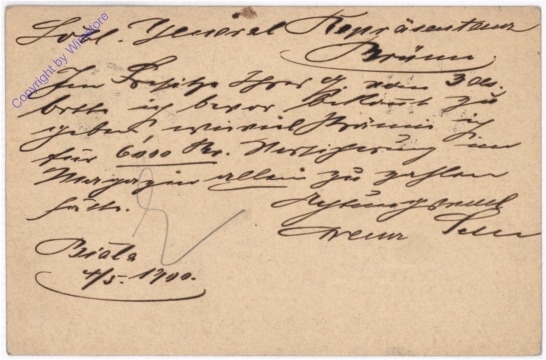 Löbl. General Repräsentanz
Brünn
Im Besitze Ihrer v. 3 do.
bitte ich bekannt zu
geben, wieviel Prämie ich
für 6000 Kr. Versicherung im
Magazin allein zu zahlen
hätte.
Achtungsvoll
Biala
4/5. 1900.
Copyright by WinStore